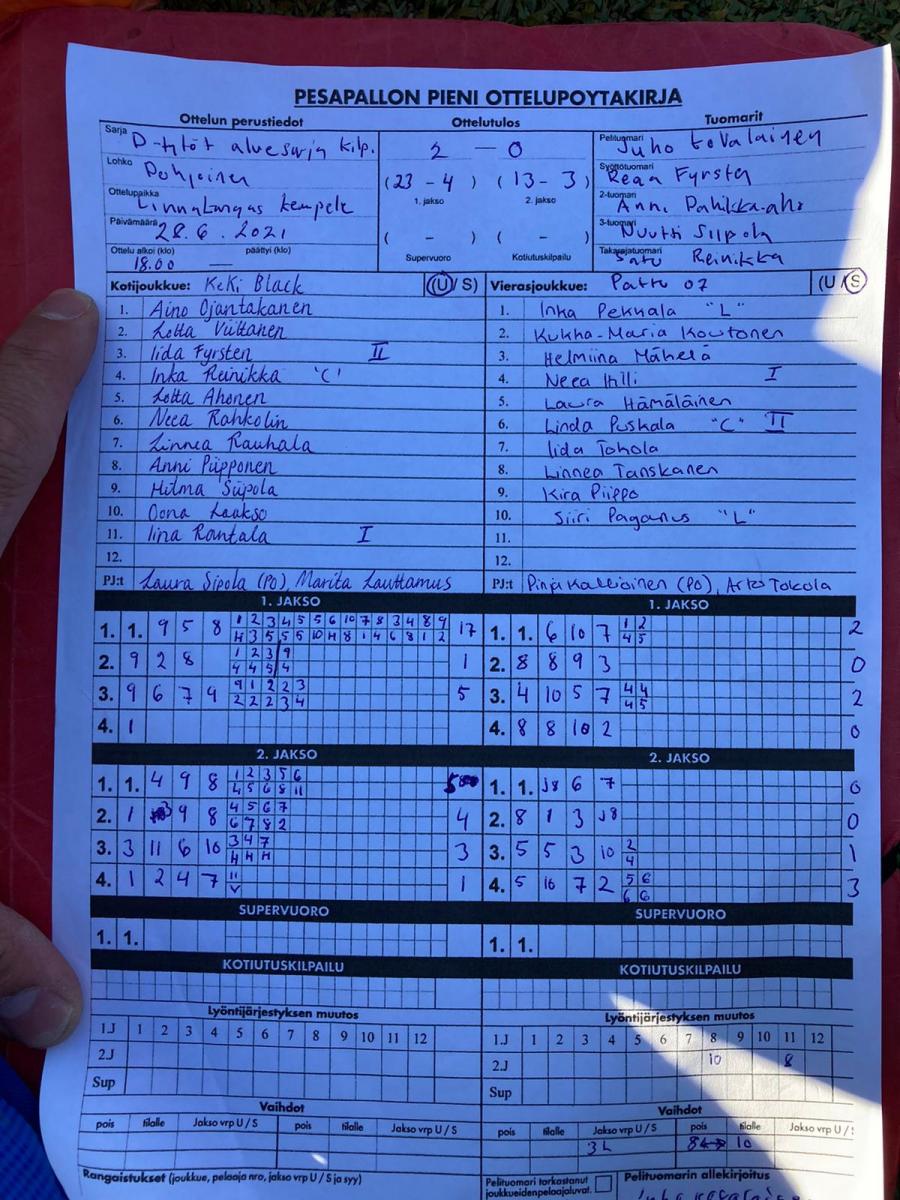 PESAPALLON PIENI OTTELUPOYTAKIRJA
Ottelun perustiedot
Ottelutulos
Tuomarit
Sarja D-tytöt aluesarja kilp.
2 — 0
Pelituomari Juho
Lohko Pohjoinen
(23 - 4) (13 - 3)
1. jakso 2. jakso
Syöttötuomari Reaa Fyrsten
Ottelupaikka Linnakangas Kempele
2-tuomari Anni Pahikka-aho
Päivämäärä 28.6.2021
( - ) ( - )
3-tuomari Nuutti Siipola
Ottelu alkoi (klo) päättyi (klo)
18.00 —
Supervuoro Kotiutuskilpailu
Takarajatuomari Satu Reinikka
Kotijoukkue: KeKi Black (U / S)
1. Aino Ojantakanen
2. Lotta Viittanen
3. Iida Fyrsten II
4. Inka Reinikka "C"
5. Lotta Ahonen
6. Neea Rahkolin
7. Linnea Rauhala
8. Anni Piipponen
9. Hilma Siipola
10. Oona Laakso
11. Iina Rantala I
12.
PJ:t Laura Sipola (PO), Marita Lauttamus
Vierasjoukkue: Pattu 07 (U / S)
1. Inka Pekkala "L"
2. Kukka-Maria Koutonen
3. Helmiina Mähelä
4. Neea Ihlli I
5. Laura Hämäläinen
6. Linda Puskala "C" II
7. Iida Tokola
8. Linnea Tanskanen
9. Kira Piippo
10. Siiri Paganus "L"
11.
12.
PJ:t Pinja Kallioinen (PO), Arto Tokola
1. JAKSO
1. 1. 9 5 8 1 2 3 4 5 5 6 10 7 8 3 4 8 9 17
H 3 5 5 5 10 H 8 1 4 6 8 1 2
2. 9 2 8 1 2 3 9 1
4 4 5 4
3. 9 6 7 9 9 1 2 2 3 5
2 2 2 3 4
4. 1
1. JAKSO
1. 1. 6 10 7 1 2 2
4 5
2. 8 8 9 3 0
3. 4 10 5 7 4 4 2
4 5
4. 8 8 10 2 0
2. JAKSO
1. 1. 4 9 8 1 2 3 5 6 5
4 5 6 8 11
2. 1 9 8 4 5 6 7 4
6 7 8 2
3. 3 11 6 10 3 4 7 3
H H H
4. 1 2 4 7 11 1
V
2. JAKSO
1. 1. J8 6 7 0
2. 8 1 3 J8 0
3. 5 5 3 10 2 1
4
4. 5 10 7 2 5 6 3
6 6
SUPERVUORO
1. 1.
SUPERVUORO
1. 1.
KOTIUTUSKILPAILU
KOTIUTUSKILPAILU
Lyöntijärjestyksen muutos
1.J 1 2 3 4 5 6 7 8 9 10 11 12
2.J
Sup
Lyöntijärjestyksen muutos
1.J 1 2 3 4 5 6 7 8 9 10 11 12
2.J 10 8
Sup
Vaihdot
pois tilalle Jakso vrp U / S pois tilalle Jakso vrp U / S
Vaihdot
pois tilalle Jakso vrp U / S pois tilalle Jakso vrp U / S
3L 8 10
Rangaistukset (joukkue, pelaaja nro, jakso vrp U / S ja syy)
Pelituomari tarkastanut
joukkueidenpelaajaluvat.
Pelituomarin allekirjoitus